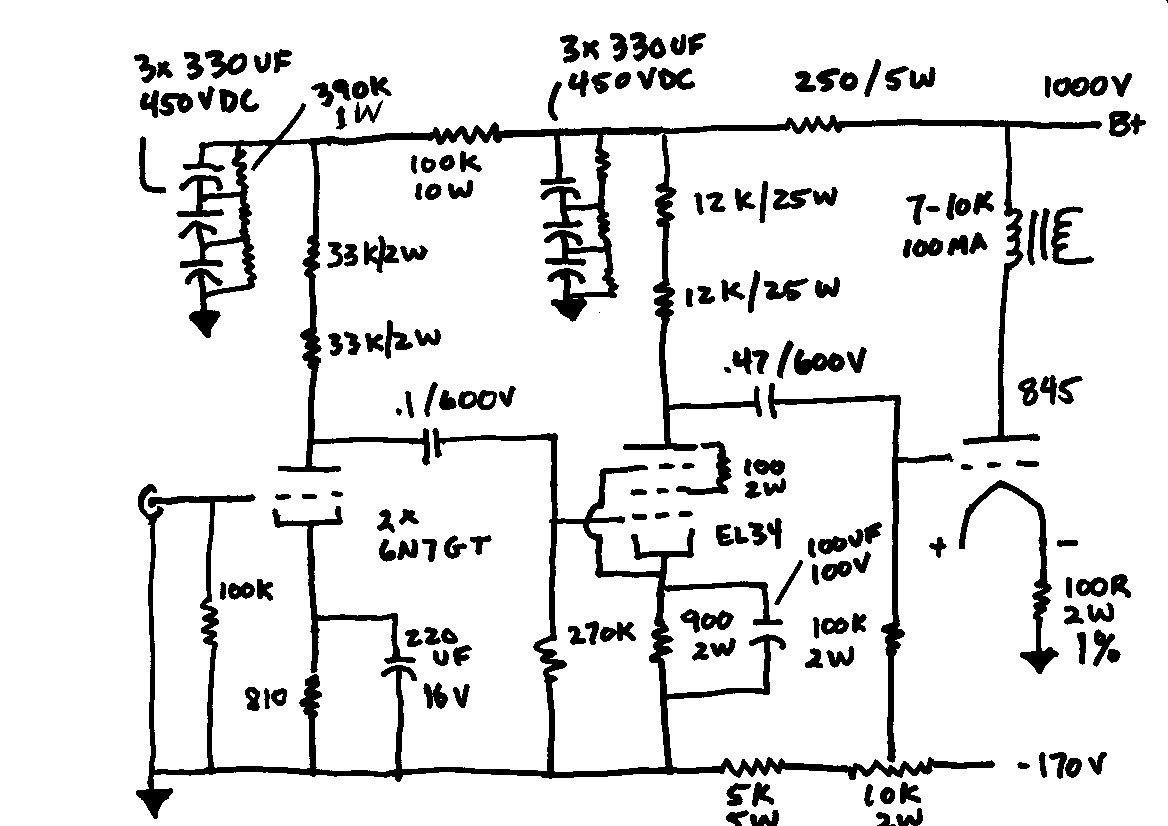 3x 330UF
450VDC
390K
1W
3x 330UF
450VDC
250/5W
1000V
B+
100K
10W
12K/25W
7-10K
100MA
33K/2W
12K/25W
33K/2W
.47/600V
845
.1/600V
100
2W
2x
6N7GT
EL34
100UF
100V
+
-
100K
270K
900
2W
100K
2W
100R
2W
1%
220
UF
16V
810
-170V
5K
5W
10K
2W